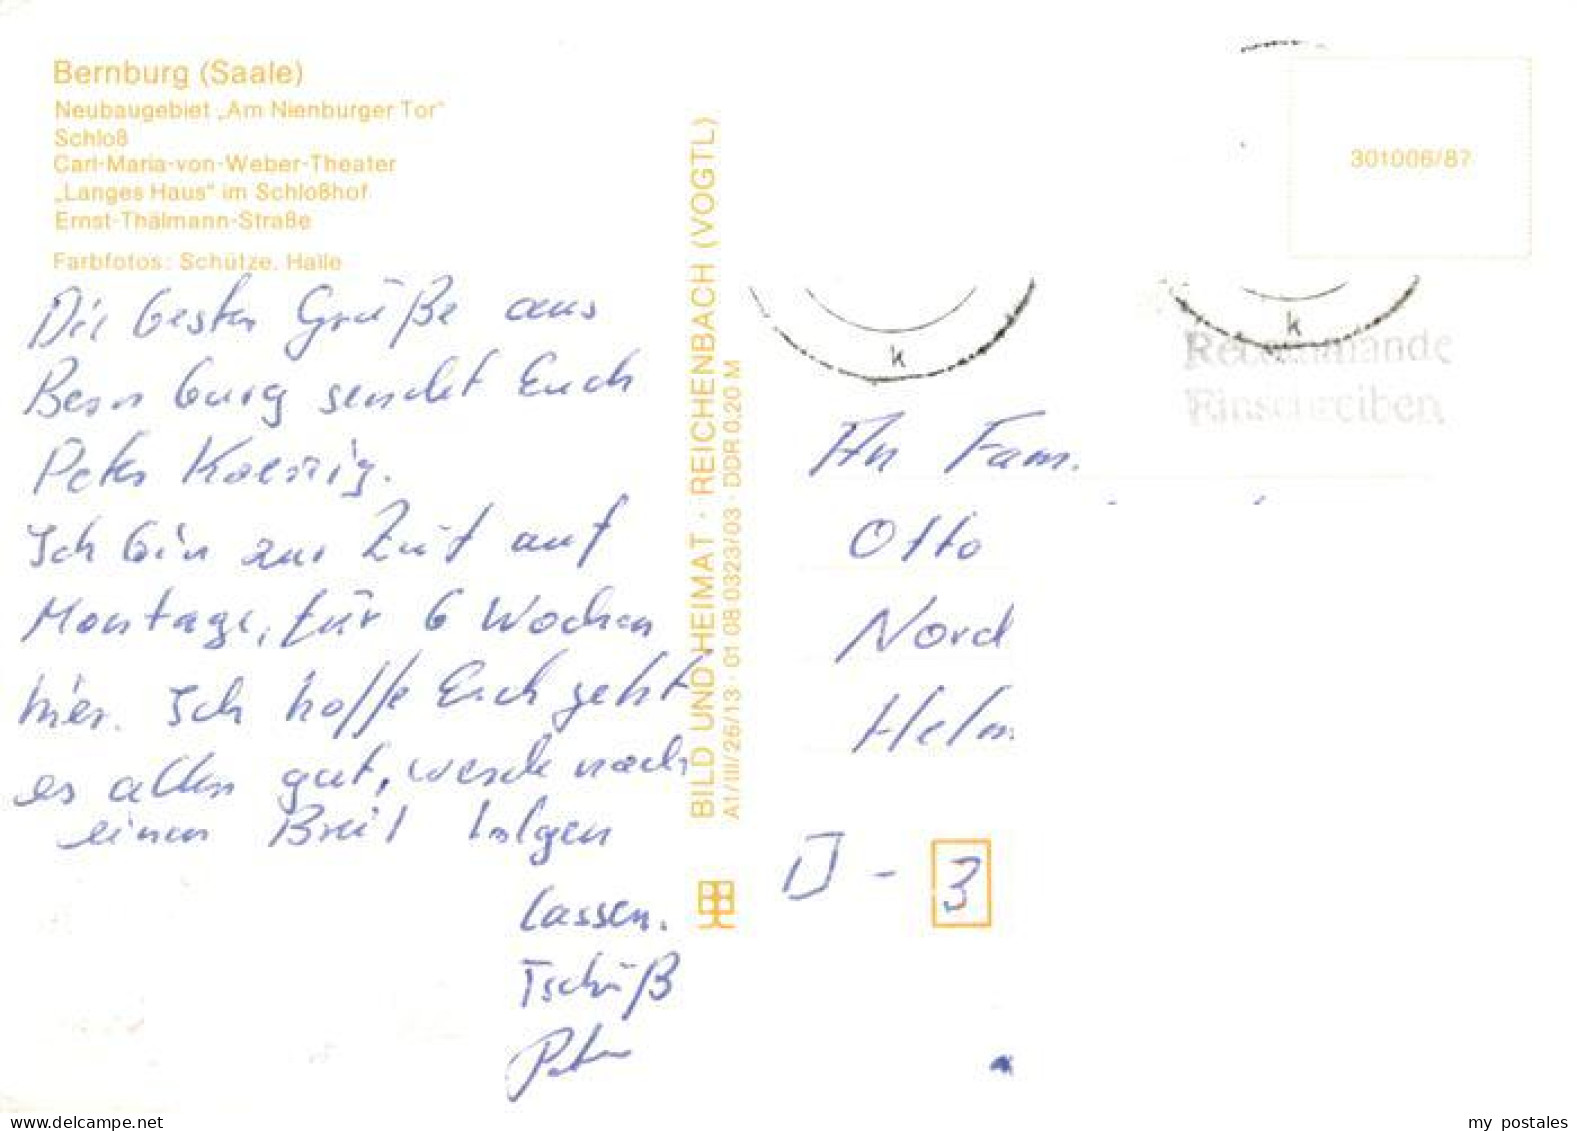 Bernburg (Saale)
Neubaugebiet „Am Nienburger Tor"
Schloß
Carl-Maria-von-Weber-Theater
„Langes Haus" im Schloßhof
Ernst-Thälmann-Straße
Farbfotos: Schütze, Halle
Die besten Grüße aus
Bernburg sendet Euch
Peter
Ich bin zur Zeit auf
Montage, für 6 Wochen
hier. Ich hoffe Euch geht
es allen gut, werde noch
einen Brief folgen
lassen.
Tschüß
Peter
BILD UND HEIMAT · REICHENBACH (VOGTL)
A1/III/26/13 · 01 08 0323/03 · DDR 0,20 M
301006/87
k
k
Recommandé
Einschreiben
An Fam.
Otto
Nord
Helm
D - 3
delcampe.net
my_postales